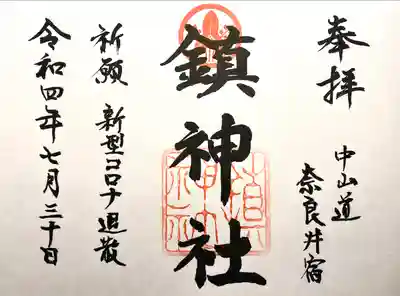 奉拝
中山道
奈良井宿
鎮神社
祈願 新型コロナ退散
令和四年七月三十日